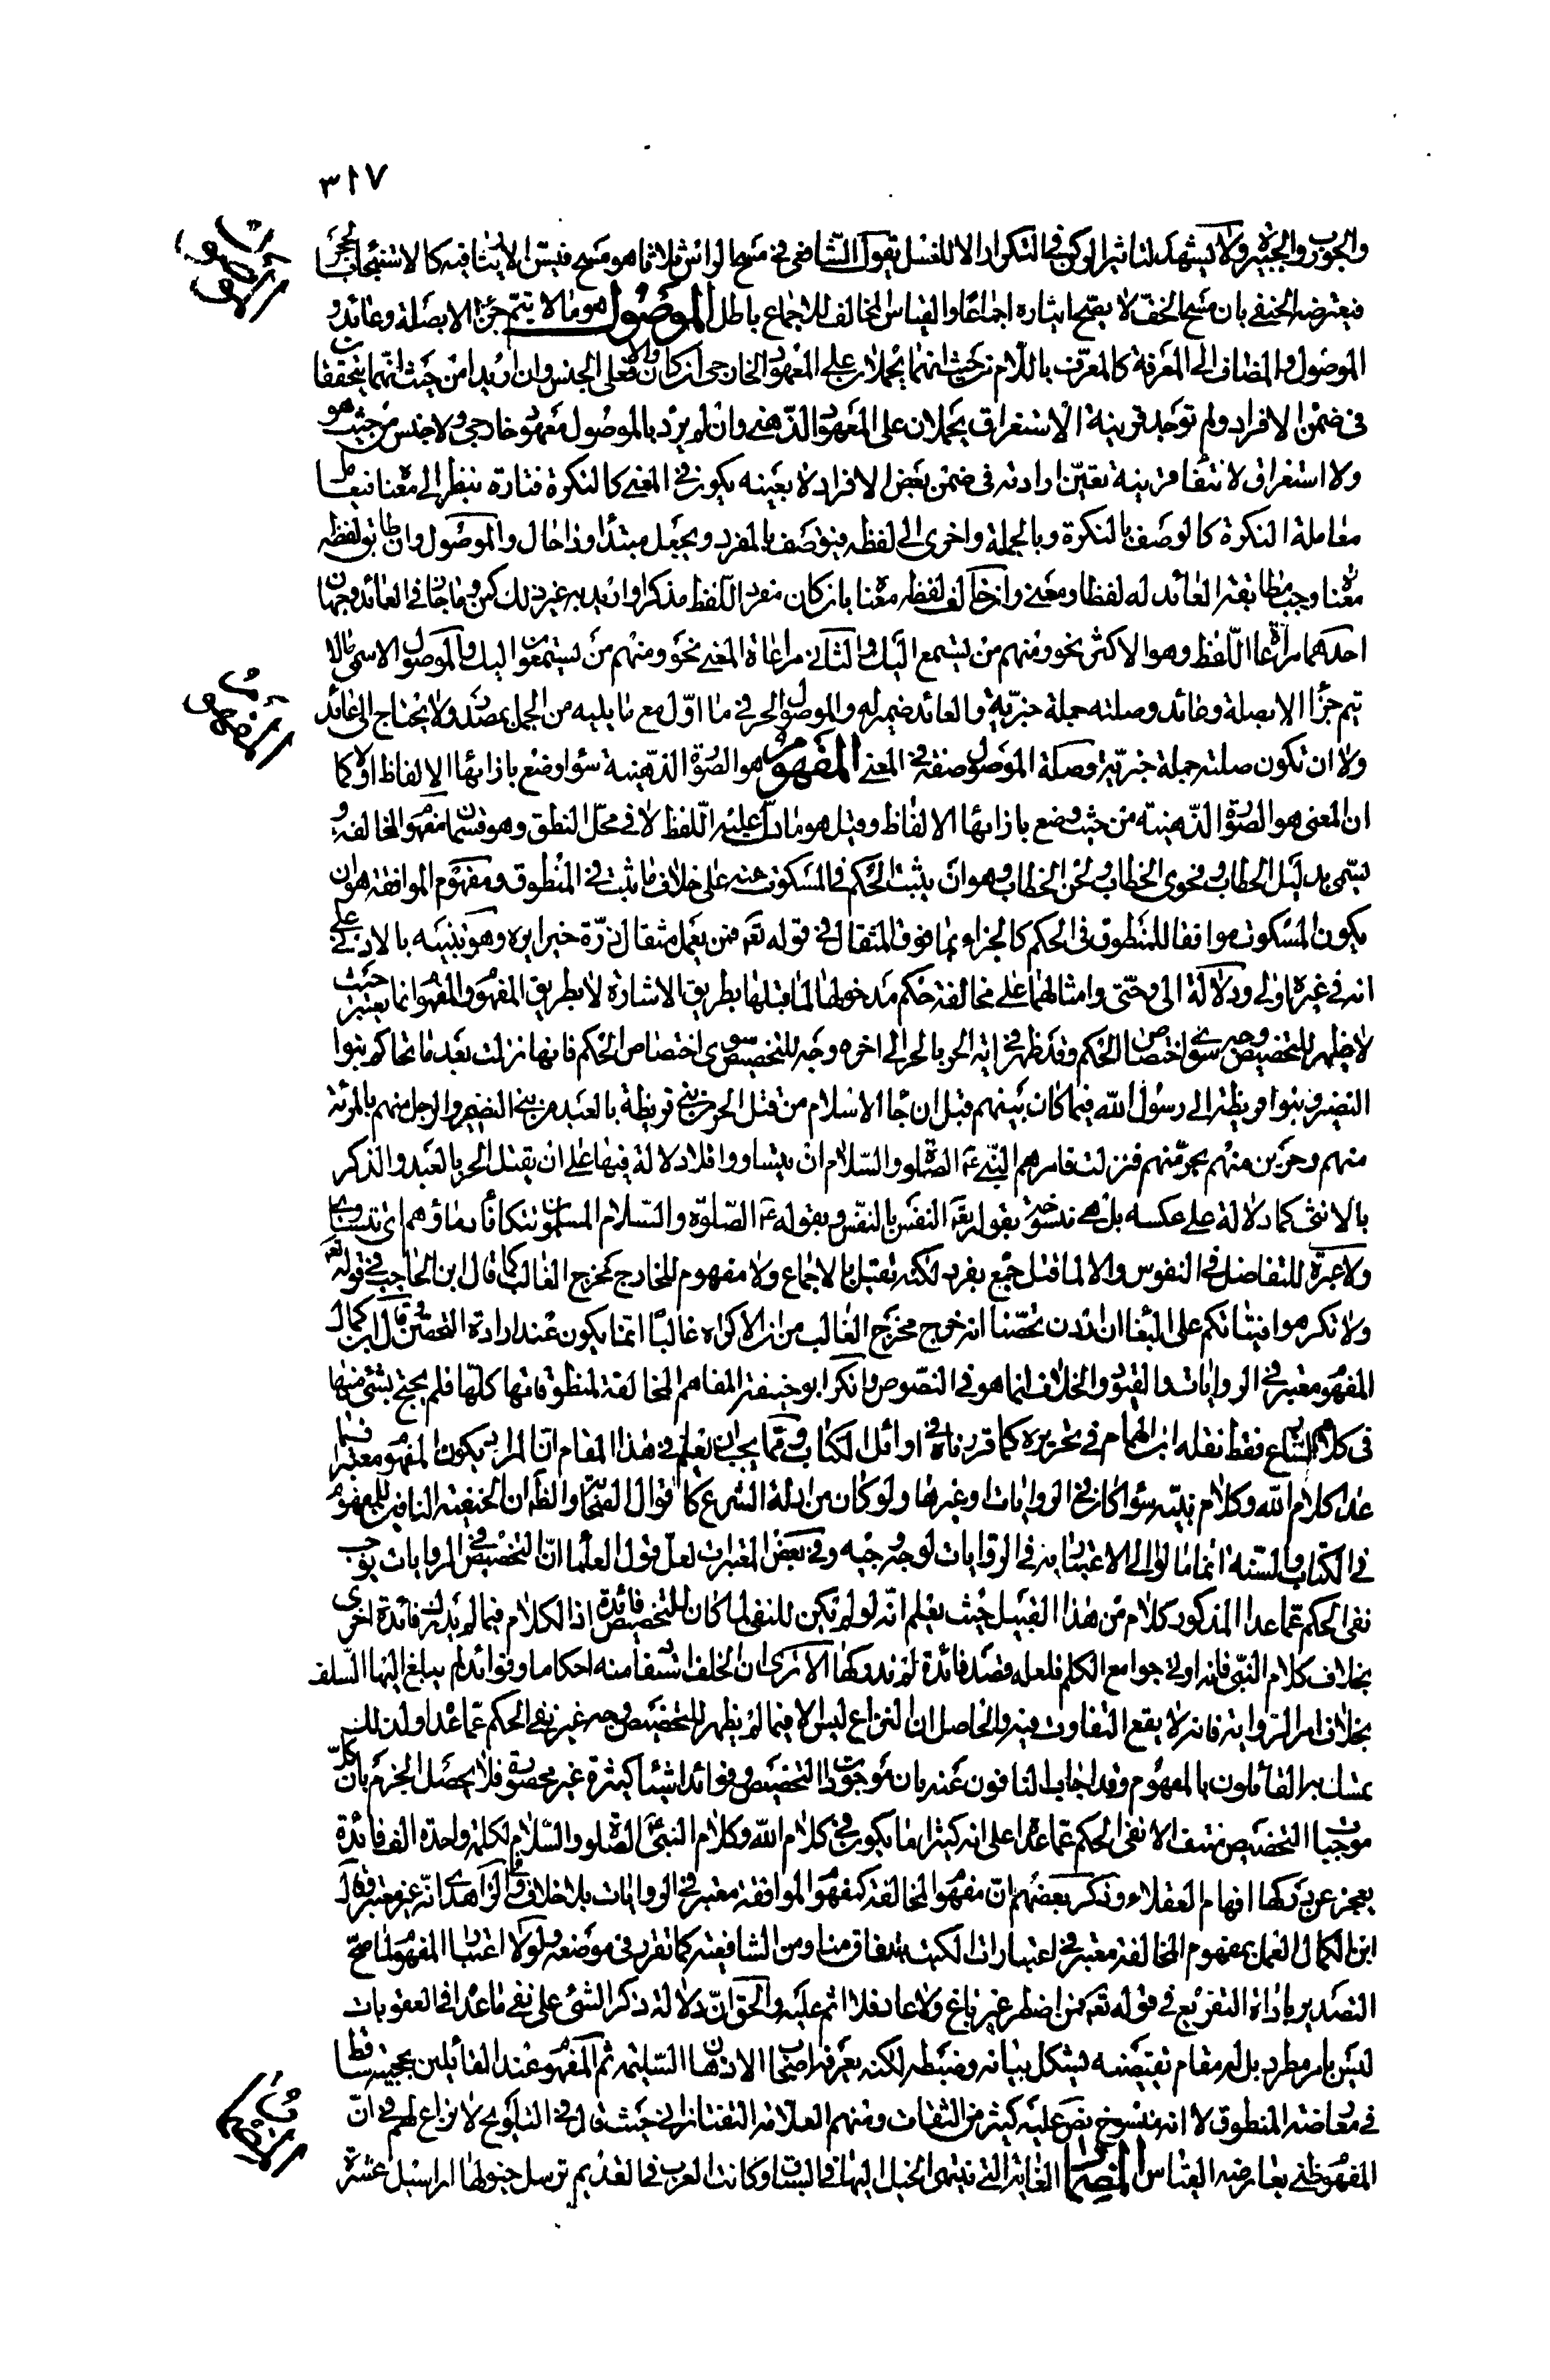 ٣١٧
والجورب والجبيرة ولا يشهد لتأثير الركن في التكرار الا للغسل يقول الشافعي في مسح الرأس ثلاثا هو مسح فيسن الايثار فيه كالاستنجاء بالحجر
فيعترضه الحنفي بان مسح الخف لا يصح ايثاره اجماعا والقياس المخالف للاجماع باطل الموصول هو ما لا يتم جزءا الا بصلة وعائد و
الموصول والمضاف الى المعرفة كالمعرف باللام من حيث انهما يحملان على المعهود الخارجي ان كان والا فعلى الجنس وان اريدا من حيث انهما يتحققان
في ضمن الافراد ولم توجد قرينة الاستغراق يحملان على المعهود الذهني وان لم يرد بالموصول معهود خارجي ولا جنس من حيث هو
ولا استغراق لانتفاء قرينة تعين ارادته في ضمن بعض الافراد لا بعينه يكون في المعنى كالنكرة فتارة ينظر الى معناه فيعامل
معاملة النكرة كالوصف بالنكرة وبالجملة واخرى الى لفظه فيوصف بالمفرد ويجعل مبتدأ وذا حال والموصول ان طابق لفظه
معناه وجب مطابقة العائد له لفظا ومعنى وان خالف لفظه معناه بان كان مفرد اللفظ مذكرا واريد به غير ذلك كمن وما جاز في العائد وجهان
احدهما مراعاة اللفظ وهو الاكثر نحو ومنهم من يستمع اليك والثاني مراعاة المعنى نحو ومنهم من يستمعون اليك والموصول الاسمي ما لا
يتم جزءا الا بصلة وعائد وصلته جملة خبرية والعائد ضمير له والموصول الحرفي ما اول مع ما يليه من الجمل بمصدر ولا يحتاج الى عائد
ولا ان تكون صلته جملة خبرية وصلة الموصول صفة في المعنى المفهوم هو الصورة الذهنية سواء وضع بازائها الالفاظ او لا كما
ان المعنى هو الصورة الذهنية من حيث وضع بازائها الالفاظ وقيل هو ما دل عليه اللفظ لا في محل النطق وهو قسمان مفهوم المخالفة و
يسمى بدليل الخطاب وفحوى الخطاب ولحن الخطاب وهو ان يثبت الحكم في المسكوت عنه على خلاف ما ثبت في المنطوق ومفهوم الموافقة هو ان
يكون المسكوت موافقا للمنطوق في الحكم كالجزاء بما فوق المثقال في قوله تع فمن يعمل مثقال ذرة خيرا يره وهو تنبيه بالادنى على
انه في غيره اولى ودلالة الى وحتى وامثالهما على مخالفة حكم مدخولها لما قبلها بطريق الاشارة لا بطريق المفهوم والمفهوم انما يعتبر حيث
لا يظهر للتخصيص وجه سوى اختصاص الحكم وقد ظهر في اية الحر بالحر الى اخره وجه للتخصيص سوى اختصاص الحكم فانها نزلت بعد ما تحاكم بنوا
النضير وبنوا قريظة الى رسول الله فيما كان بينهم قبل ان جاء الاسلام من قتل الحر من بني قريظة بالعبد من بني النضير والرجل منهم بالمرئة
منهم وحرين منهم بحر منهم فنزلت فامرهم النبي عم الصلوة والسلام ان يتساووا فلا دلالة فيها على ان يقتل الحر بالعبد والذكر
بالانثى كما لا دلالة على عكسه بل هي منسوخة بقوله تع النفس بالنفس وبقوله عم الصلوة والسلام المسلمون تتكافأ دماؤهم اي تتساوى
ولا عبرة للتفاضل في النفوس والا لما قتل جمع بفرد لكنه يقتل بالاجماع ولا مفهوم للخارج مخرج الغالب كما قال ابن الحاجب في قوله تع
ولا تكرهوا فتياتكم على البغاء ان اردن تحصنا انه خرج مخرج الغالب من ان الاكراه غالبا انما يكون عند ارادة التحصن قال ابن كمال
المفهوم معتبر في الروايات والقيود والخلاف انما هو في النصوص وانكر ابو حنيفة المفاهيم المخالفة لمنطوقاتها كلها فلم يحتج بشئ منها
في كلام الشارع فقط نقله ابن الهمام في تحريره كما قررناه في اوائل الكتاب ومما يجب ان يعلم في هذا المقام ان المراد بكون المفهوم معتبرا فيما
عدا كلام الله وكلام نبيه سواء كان في الروايات وغيرها ولو كان من ادلة الشرع كاقوال الصحابة والظاهر ان الحنفية النافين للمفهوم
في الكتاب والسنة انما مالوا الى الاعتبار به في الروايات لوجه وجيه وفي بعض المعتبرات لعل قول العلماء ان التخصيص في الروايات يوجب
نفي الحكم عما عدا المذكور كلام من هذا القبيل حيث يعلم انه لو لم يكن للنفي لما كان للتخصيص فائدة اذ الكلام فيما لم يدرك فائدة اخرى
بخلاف كلام النبي فانه اوتي جوامع الكلم فلعله قصد فائدة لم ندركها الا ترى ان الخلف استفاد منه احكاما وفوائد لم يبلغ اليها السلف
بخلاف امر الرواية فانه لا يقع التفاوت فيه والحاصل ان النزاع ليس الا فيما لم يظهر للتخصيص وجه غير نفي الحكم عما عدا ولذلك
تمسك به القائلون بالمفهوم وقد اجاب النافون عنه بان موجبات التخصيص وفوائد اشياء كثيرة غير محصورة فلا يحصل الجزم بان كل
موجبات التخصيص منتف الا نفي الحكم عما عدا على انه كثيرا ما يكون في كلام الله وكلام النبي الصلوة والسلام لكلمة واحدة الف فائدة
يعجز عن دركها افهام العقلاء وذكر بعضهم ان مفهوم المخالفة كمفهوم الموافقة معتبر في الروايات بلا خلاف وفي الزاهدي انه غير معتبر قال
ابن الكمال العمل بمفهوم المخالفة معتبر في اعتبارات الكتب باتفاق منا ومن الشافعية كما تقرر في موضعه ولولا اعتبار المفهوم لما صح
التصدير باداة التفريع في قوله تع فمن اضطر غير باغ ولا عاد فلا اثم عليه والحق ان دلالة ذكر الشئ على نفي ما عدا في العقوبات
ليس بامر مطرد بل له مقام تقتضيه يشكل بيانه وضبطه لكنه يعرفه اصحاب الاذهان السليمة ثم المفهوم عند القائلين بحجيته ساقط
في معارضة المنطوق لا انه منسوخ نص عليه كثير من الثقات ومنهم العلامة التفتازاني حيث قال في التلويح لا نزاع لهم في ان
المفهوم ظني يعارضه القياس المضمار الغاية التي تنتهي الخيل اليها في السباق وكانت العرب في القديم ترسل خيولها ارسيل عشرة